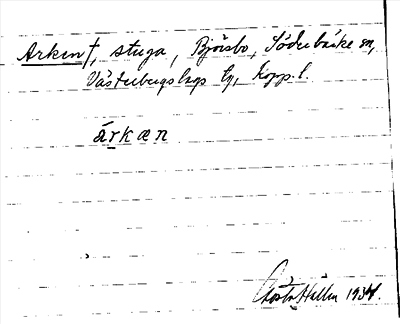 Arken †, stuga, Björsbo, Söderbärke sn,
Västerbergslags tg, Kopp. l.
árkæn
Gösta Hallm 1934.